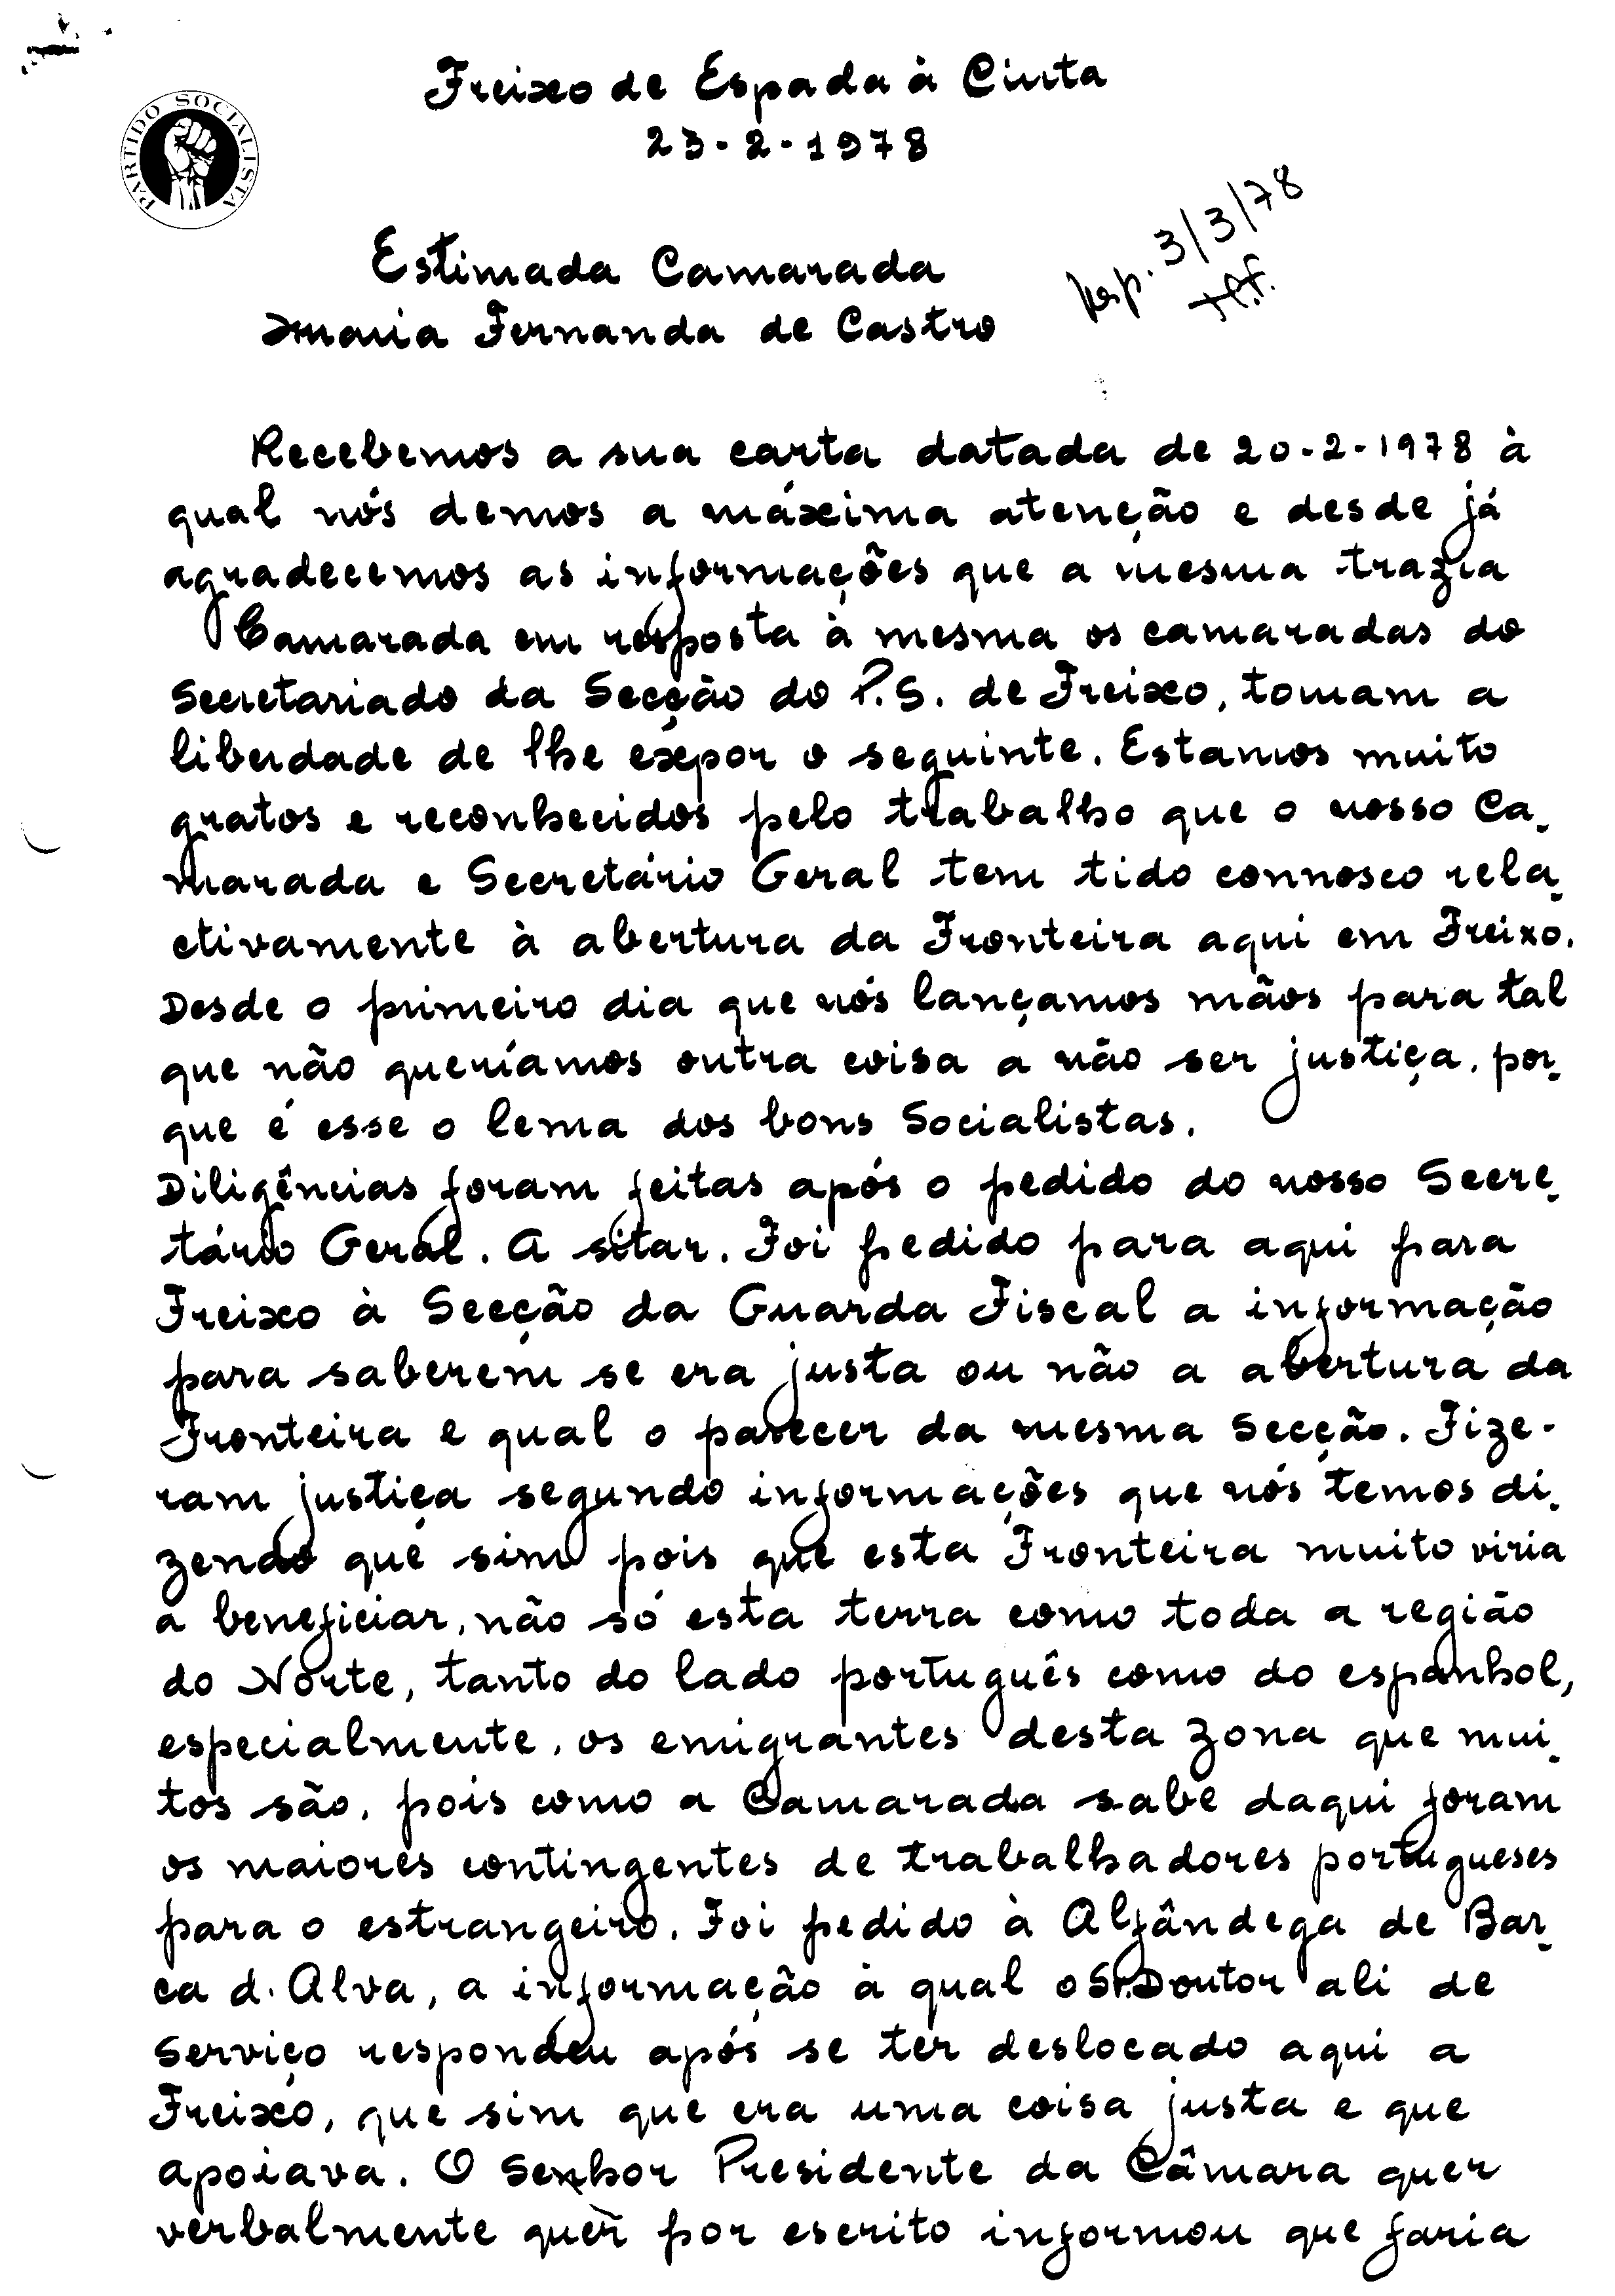 Freixo de Espada à Cinta
23-2-1978
PARTIDO SOCIALISTA
Resp. 3/3/78
Estimada Camarada
Maria Fernanda de Castro
Recebemos a sua carta datada de 20-2-1978 à
qual nós demos a máxima atenção e desde já
agradecemos as informações que a mesma trazia
Camarada em resposta à mesma os camaradas do
Secretariado da Secção do P.S. de Freixo, tomam a
liberdade de lhe expor o seguinte. Estamos muito
gratos e reconhecidos pelo trabalho que o nosso Ca-
marada e Secretário Geral tem tido connosco rela-
ctivamente à abertura da Fronteira aqui em Freixo.
Desde o primeiro dia que nós lançamos mãos para tal
que não queríamos outra coisa a não ser justiça, por-
que é esse o lema dos bons Socialistas.
Diligências foram feitas após o pedido do nosso Secre-
tário Geral. A sitar. Foi pedido para aqui para
Freixo à Secção da Guarda Fiscal a informação
para saberem se era justa ou não a abertura da
Fronteira e qual o parecer da mesma Secção. Fize-
ram justiça segundo informações que nós temos di-
zendo que sim pois que esta Fronteira muito viria
a beneficiar, não só esta terra como toda a região
do Norte, tanto do lado português como do espanhol,
especialmente, os emigrantes desta zona que mui-
tos são, pois como a Camarada sabe daqui foram
os maiores contingentes de trabalhadores portugueses
para o estrangeiro. Foi pedido à Alfândega de Bar-
ca d. Alva, a informação à qual o Sr. Doutor ali de
Serviço respondeu após se ter deslocado aqui a
Freixo, que sim que era uma coisa justa e que
apoiava. O Senhor Presidente da Câmara quer
verbalmente quer por escrito informou que faria